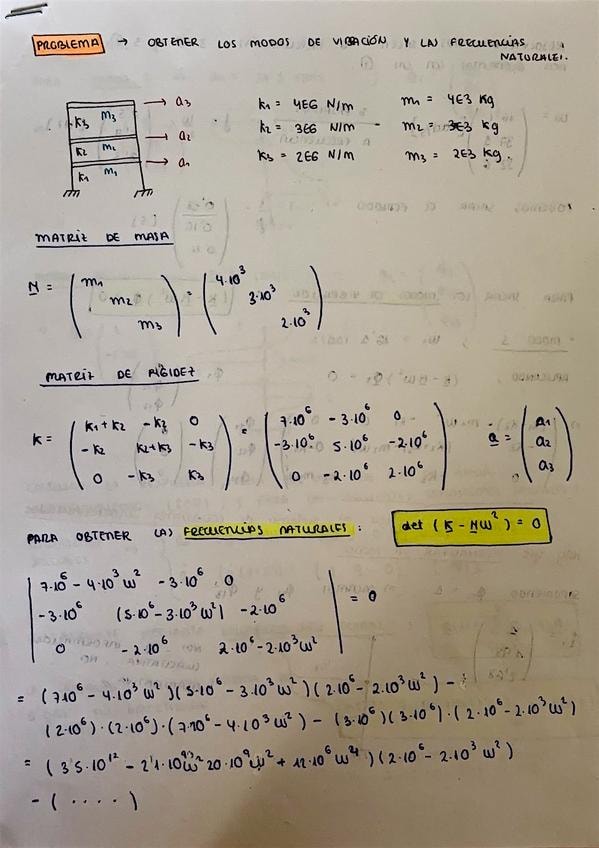 PROBLEMA → OBTENER LOS MODOS DE VIBRACIÓN Y LAS FRECUENCIAS
NATURALES.
k3 m3 → a3
k2 m2 → a2
k1 m1 → a1
k1 = 4E6 N/m m1 = 4E3 kg
k2 = 3E6 N/m m2 = 3E3 kg
k3 = 2E6 N/m m3 = 2E3 kg.
MATRIZ DE MASA
M = ( m1 m2 m3 ) = ( 4·10³ 3·10³ 2·10³ )
MATRIZ DE RIGIDEZ
K = ( k1+k2 -k2 0 ) = ( 7·10⁶ -3·10⁶ 0 ) a = ( a1 )
( -k2 k2+k3 -k3 ) ( -3·10⁶ 5·10⁶ -2·10⁶ ) ( a2 )
( 0 -k3 k3 ) ( 0 -2·10⁶ 2·10⁶ ) ( a3 )
PARA OBTENER LAS FRECUENCIAS NATURALES: det (K - Mω²) = 0
| 7·10⁶ - 4·10³ω² -3·10⁶ 0 |
| -3·10⁶ (5·10⁶ - 3·10³ω²) -2·10⁶ | = 0
| 0 -2·10⁶ 2·10⁶ - 2·10³ω² |
= (7·10⁶ - 4·10³ω²)(5·10⁶ - 3·10³ω²)(2·10⁶ - 2·10³ω²) -
(2·10⁶)·(2·10⁶)·(7·10⁶ - 4·10³ω²) - (3·10⁶)(3·10⁶)·(2·10⁶ - 2·10³ω²)
= (35·10¹² - 21·10⁹ω² 20·10⁹ω² + 12·10⁶ω⁴)(2·10⁶ - 2·10³ω²)
- (....)